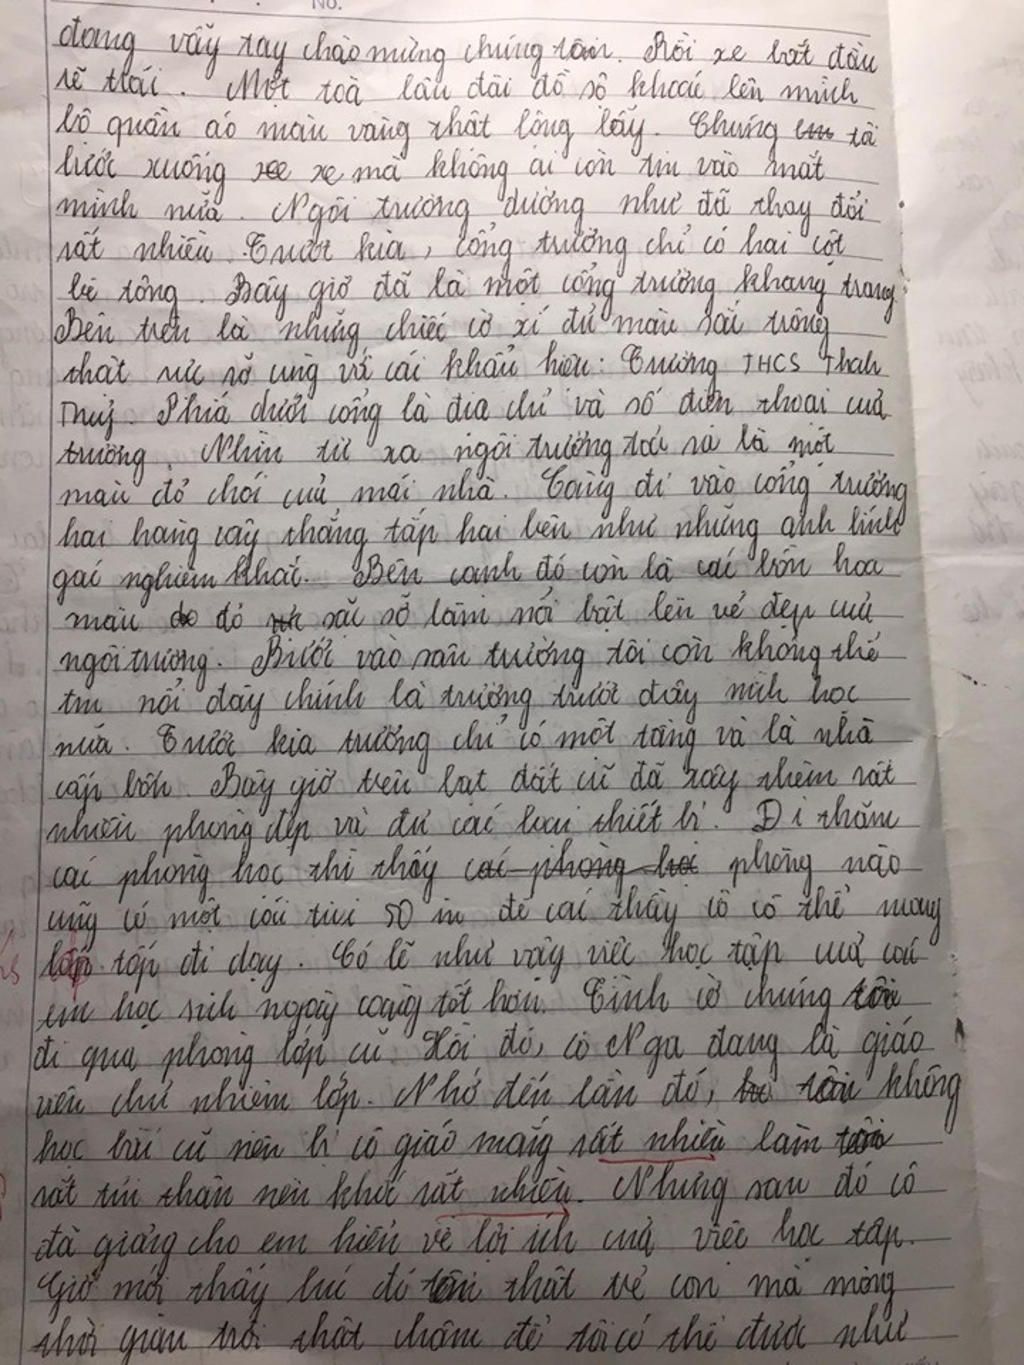 No.
đang vẫy tay chào mừng chúng tôi. Rồi xe bắt đầu
rẽ trái. Một toà lâu đài đồ sộ khoác lên mình
bộ quần áo màu vàng thật lộng lẫy. Chúng em tôi
bước xuống xe xe mà không ai còn tin vào mắt
mình nữa. Ngôi trường dường như đã thay đổi
rất nhiều. Trước kia, cổng trường chỉ có hai cột
bê tông. Bây giờ đã là một cổng trường khang trang
Bên trên là những chiếc cờ xí đủ màu sắc trông
thật rực rỡ cùng với cái khẩu hiệu: Trường THCS Thanh
Thuỷ. Phía dưới cổng là địa chỉ và số điện thoại của
trường. Nhìn từ xa ngôi trường toả ra là một
màu đỏ chói của mái nhà. Càng đi vào cổng trường
hai hàng cây thẳng tắp hai bên như những anh lính
gác nghiêm khắc. Bên cạnh đó còn là cái bồn hoa
màu đo đỏ sặc sỡ làm nổi bật lên vẻ đẹp của
ngôi trường. Bước vào sân trường tôi còn không thể
tin nổi đây chính là trường trước đây mình học
nữa. Trước kia trường chỉ có một tầng và là nhà
cấp bốn. Bây giờ trên bạt đất cũ đã xây thêm rất
nhiều phòng đẹp và đủ các loại thiết bị. Đi thăm
các phòng học thì thấy các phòng học phòng nào
cũng có một cái tivi 50 in để các thầy cô có thể mang
lớp tốp đi dạy. Có lẽ như vậy việc học tập của các
em học sinh ngày càng tốt hơn. Tình cờ chúng tôi
đi qua phòng lớp cũ. Hồi đó, cô Nga đang là giáo
viên chủ nhiệm lớp. Nhớ đến lần đó, tôi không
học bài cũ nên bị cô giáo mắng rất nhiều làm tôi
rất tủi thân nên khóc rất nhiều. Nhưng sau đó cô
đã giảng cho em hiểu về lợi ích của việc học tập.
Giờ mới thấy lúc đó tôi thật trẻ con mà mong
thời gian trôi thật chậm để tôi có thể được như